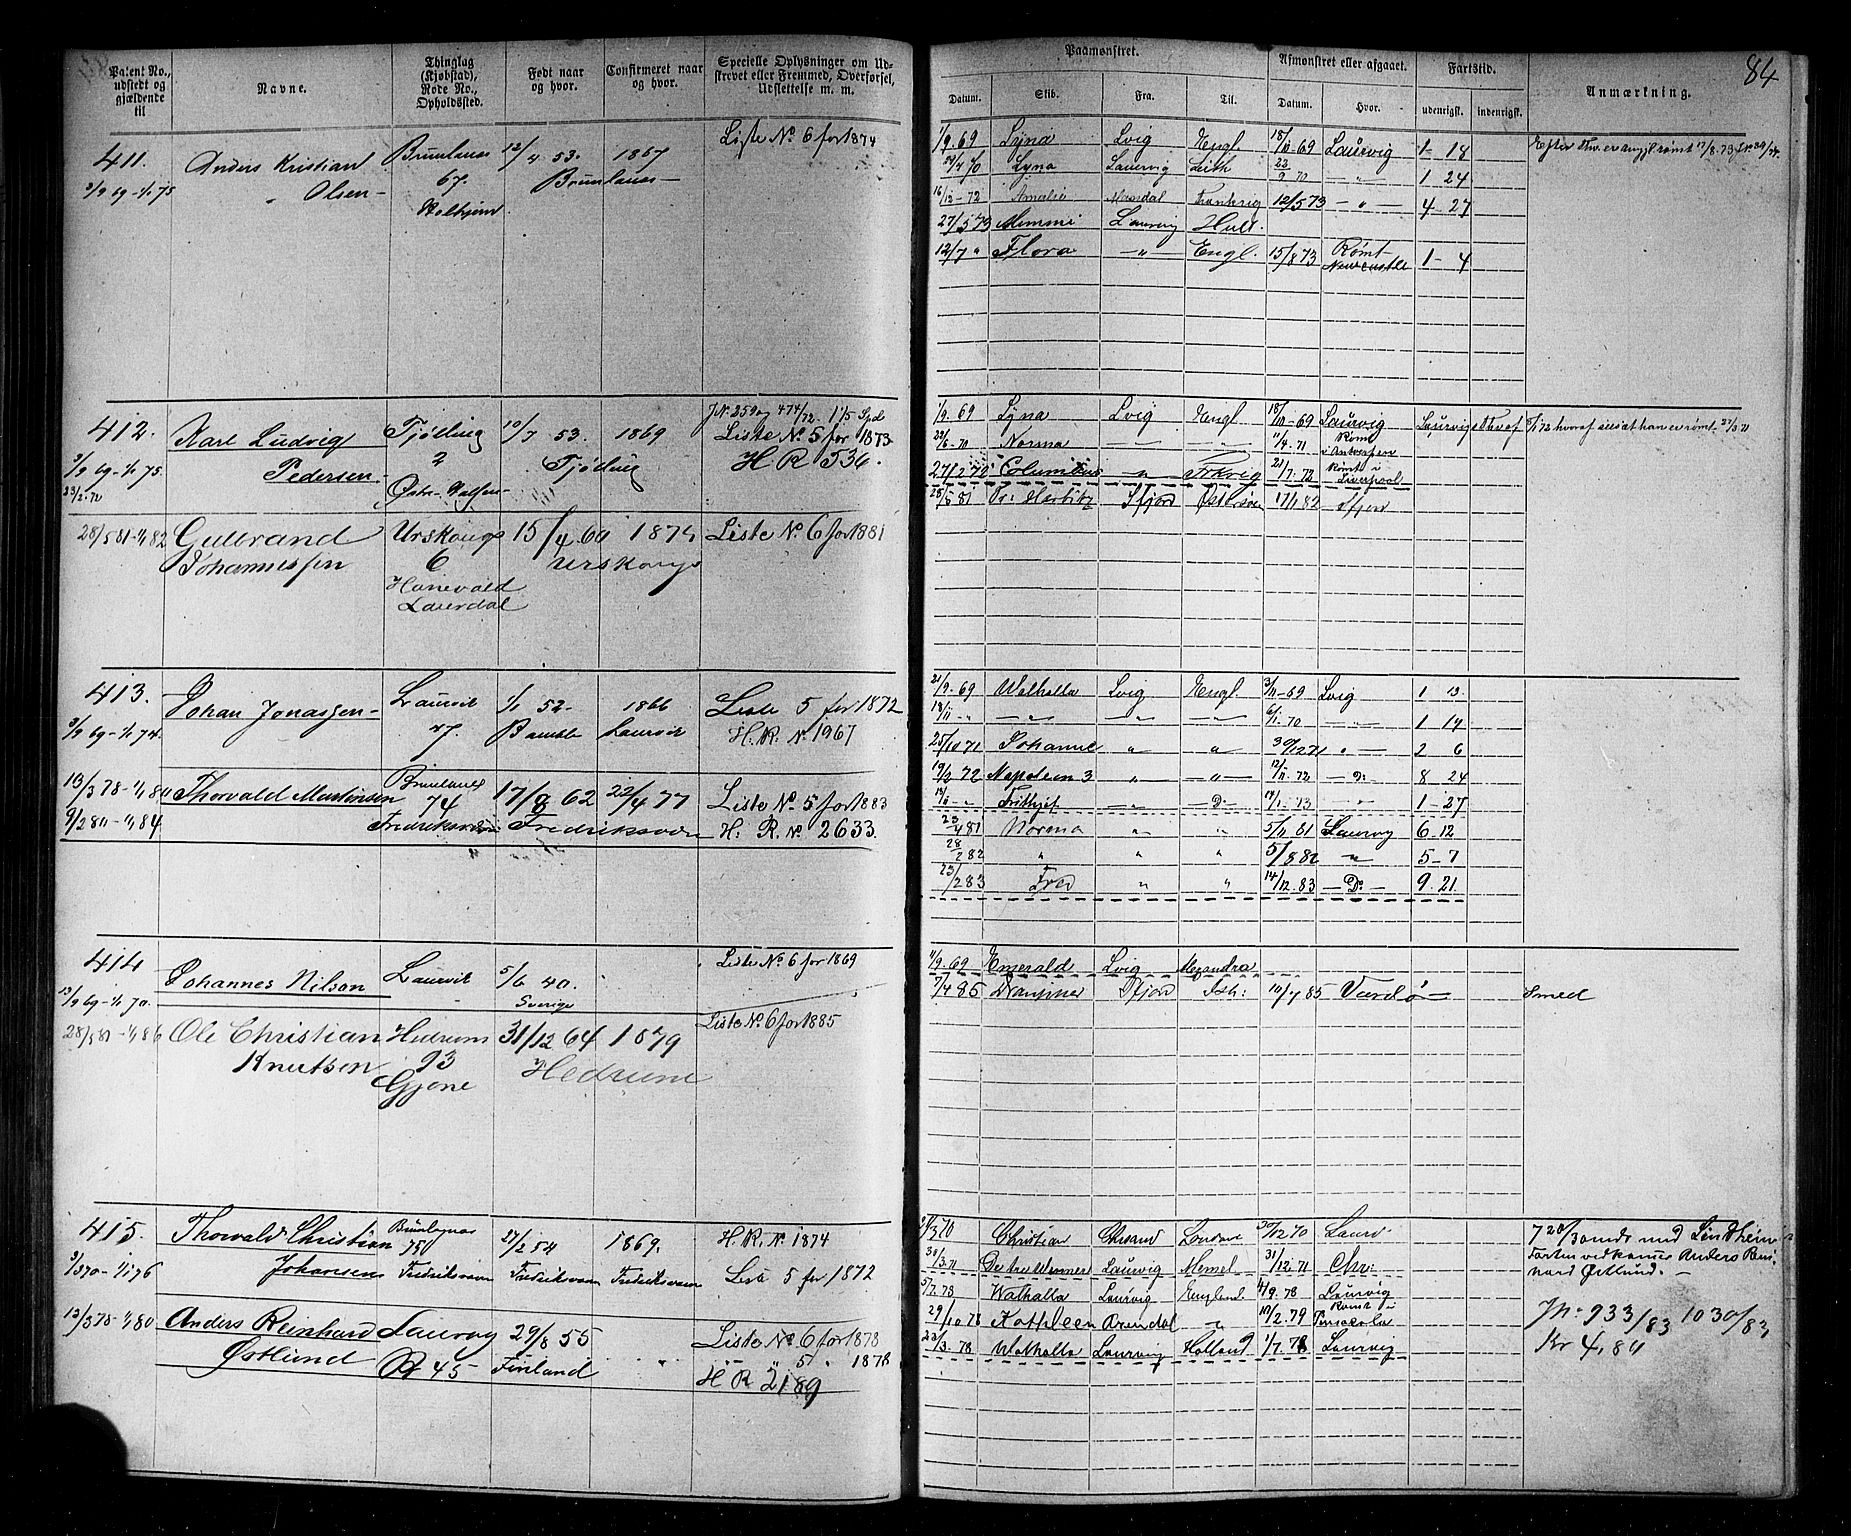 84
Patent No., udstedt og gjældende til
Navne.
Thinglag (Kjøbstad), Rode No., Opholdssted.
Født naar og hvor.
Confirmeret naar og hvor.
Specielle Oplysninger om Udskrevet eller Fremmed, Overførsel, Udslettelse m. m.
Paamønstret.
Afmønstret eller afgaaet.
Fartstid.
Anmærkning.
Datum. Skib. Fra. Til. Datum. Hvor. udenrigsk. indenrigsk.
411. Anders Kristian Brunlanes 12/4 53. 1867 Liste No 6 for 1874
1/9 69 - 1/1 75 Olsen 67. Brunlanes
1/9. 69 Lyna Lvig Engl 18/11 69 Laurvig 1 - 18
Lyna Laurvig Leith 1 24
16/12 - 72 Frankrig 12/5 73 - " - 4 - 27
27/5 73 Mimmi Laurvig Hull.
12/7 " Flora - " - Engl. 15/8 73 Rømt Newcastle 1 - 4
412. Karl Ludvig Tjølling 10/7 53. 1869 Liste No 5 for 1873
1/9 69 - 1/1 75. Pedersen 2 Tjølling H R 536.
23/2. 72 Østre
1/9. 69 Lyna Lvig Engl 18/11 - 69 Laurvig
22/6 - 70 Norma 11/9. 71 Rømt i Antverpen
27/12 70 Columbus - " - Frkrig 21/7. 72 Rømt i Liverpool
28/5 81 Sfjord Østersøen 17/11 82 Sfjord
28/5 81 - 1/1 82 Gulbrand Urskoug 15/4 60 1875 Liste No 6 for 1881
Johannessen 6 Urskoug
Hanevald
Laurdal
413. Johan Jonassen Laurvik 1/1 52. 1866 Liste 5 for 1872
1/9 69 - 1/1 74. 47. Bamble Laurvik H. R. No 1967
21/9. 69 Walhalla Lvig Engl. 3/11 - 69 Lvig 1 13.
18/11 - " - " - - " - - " - 6/1. 70 - " - 1 14
25/10 71 Johanne " " 30/12 71 " - 2 6
19/2 72 Napoleon 3 " - " - 12/11. 72 - D: 8 24
Frithjof - " - - D - 14/1. 73 - " - 1 - 27
13/3 78 - 1/1 80 Thorvald Martinsen Brunlanes 17/8 62 22/4 77 Liste No 5 for 1883
9/2 80 - 1/1 84 74 Fredriksværn Fredriksværn H. R. No 2633.
23/4 81 Norma " " 5/11 81 Laurvig 6 - 12
28/2 82 " " " 5/8 82 " 5 - 7
23/2 83 Fred " " 14/12. 83 - D: - 9. 21
414 Johannes Nilsen Laurvik 5/6 40. Liste No 6 for 1869
13/9 69 - 1/1 70. Sverige
11/9. 69 Emerald Lvig Alexandra
7/4 85 Sfjord Ish: 10/7 85 Vardø Smed
28/3 81 - 1/1 86 Ole Christian Hedrum 31/12 64 1879 Liste No 6 for 1885
Knutsen 93 Hedrum
Gjone
415. Thorvald Christian Brunlanes 27/2 54 1869. H. R. No 1874
3/3 70 - 1/1 76 Johansen 75 Fredriksværn Fredriksværn Fredriksværn Liste 5 for 1872
Christian London 30/12 70 Laurv
30/3. 71 Laurvig Memel 31/12. 71 Chr:
5/7. 78 Walhalla Laurvig England. 4/9. 78 Laurvig
13/3 78 - 1/1 80 Anders Reinhard Laurvig 29/8 55 Liste No 6 for 1878
Østlund R 45 Finland " " 5 " 1878
H R 2189
29/10 78 Kathleen Arendal " 10/2. 79 Rømt i Pensacola
23/3. 78 Walhalla Laurvig Holland 1/7. 78 Laurvig
Anders Reinhard Østlund.
Jn: 933/83 1030/83
Kr 4,80